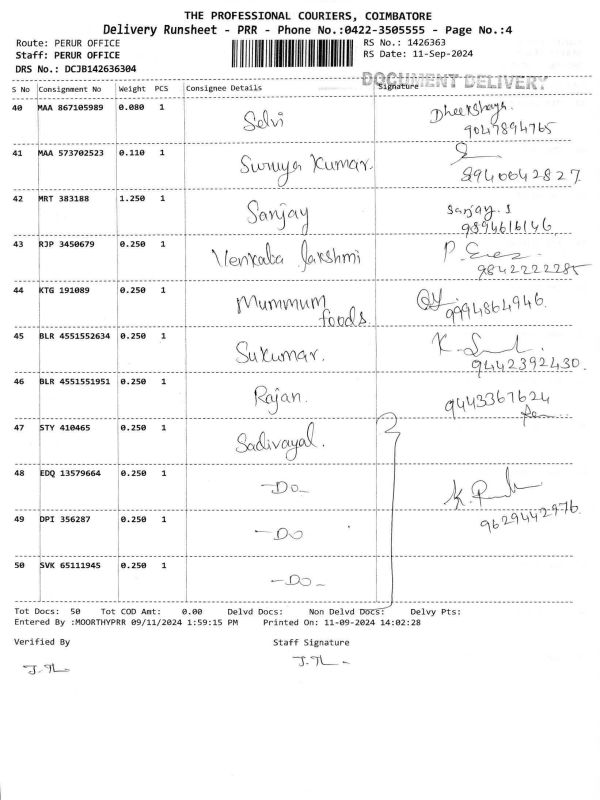 THE PROFESSIONAL COURIERS, COIMBATORE
Delivery Runsheet - PRR - Phone No.:0422-3505555 - Page No.:4
Route: PERUR OFFICE RS No.: 1426363
Staff: PERUR OFFICE RS Date: 11-Sep-2024
DRS No.: DCJB142636304
DOCUMENT DELIVERY
S No Consignment No Weight PCS Consignee Details Signature
40 MAA 867105989 0.080 1 Selvi
9047894765
41 MAA 573702523 0.110 1 Suruya Kumar.
8940642827
42 MRT 383188 1.250 1 Sanjay Sanjay. S
9894616146
43 RJP 3450679 0.250 1 Venkaba lakshmi
9842222285
44 KTG 191089 0.250 1 Mummum
foods. 9994864946.
45 BLR 4551552634 0.250 1 Sukumar.
9442392430.
46 BLR 4551551951 0.250 1 Rajan. 9443367624
47 STY 410465 0.250 1 Sadivayal.
48 EDQ 13579664 0.250 1 -Do-
49 DPI 356287 0.250 1 -Do 9629442976.
50 SVK 65111945 0.250 1 -Do-
Tot Docs: 50 Tot COD Amt: 0.00 Delvd Docs: Non Delvd Docs: Delvy Pts:
Entered By :MOORTHYPRR 09/11/2024 1:59:15 PM Printed On: 11-09-2024 14:02:28
Verified By Staff Signature